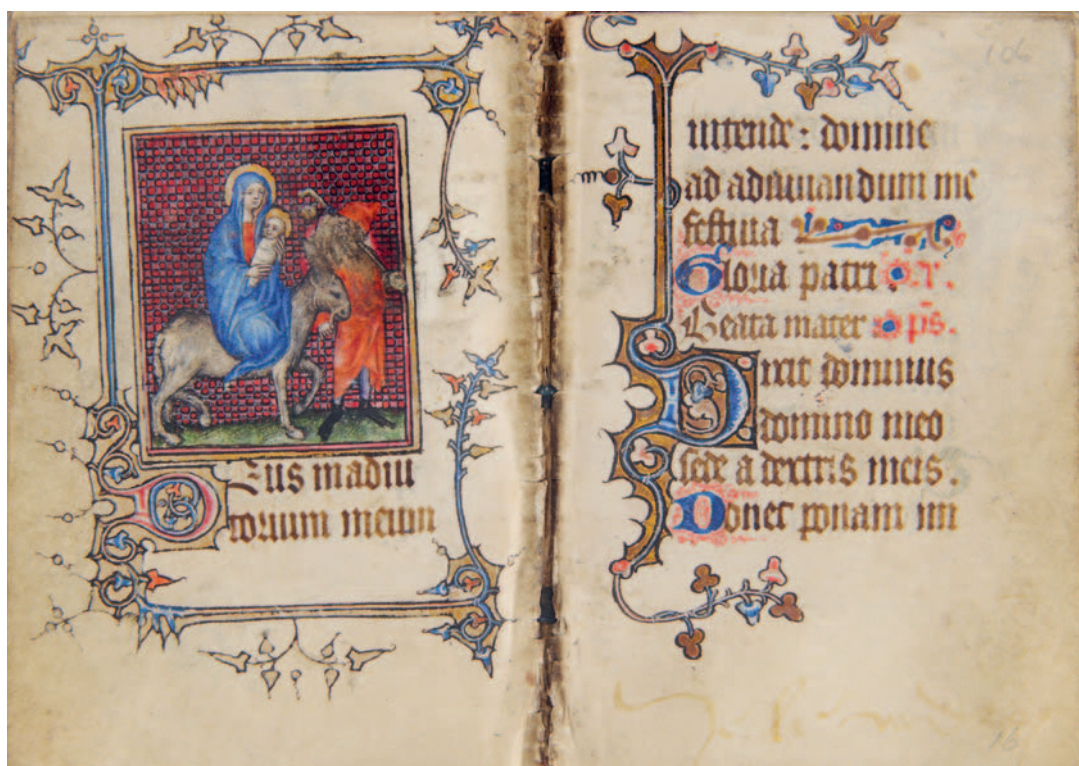 Deus in adiu
torium meum
106
intende: domine
ad adiuuandum me
festina
Gloria patri. 
Beata mater ps.
Dixit dominus
domino meo
sede a dextris meis.
Donec ponam ini
16